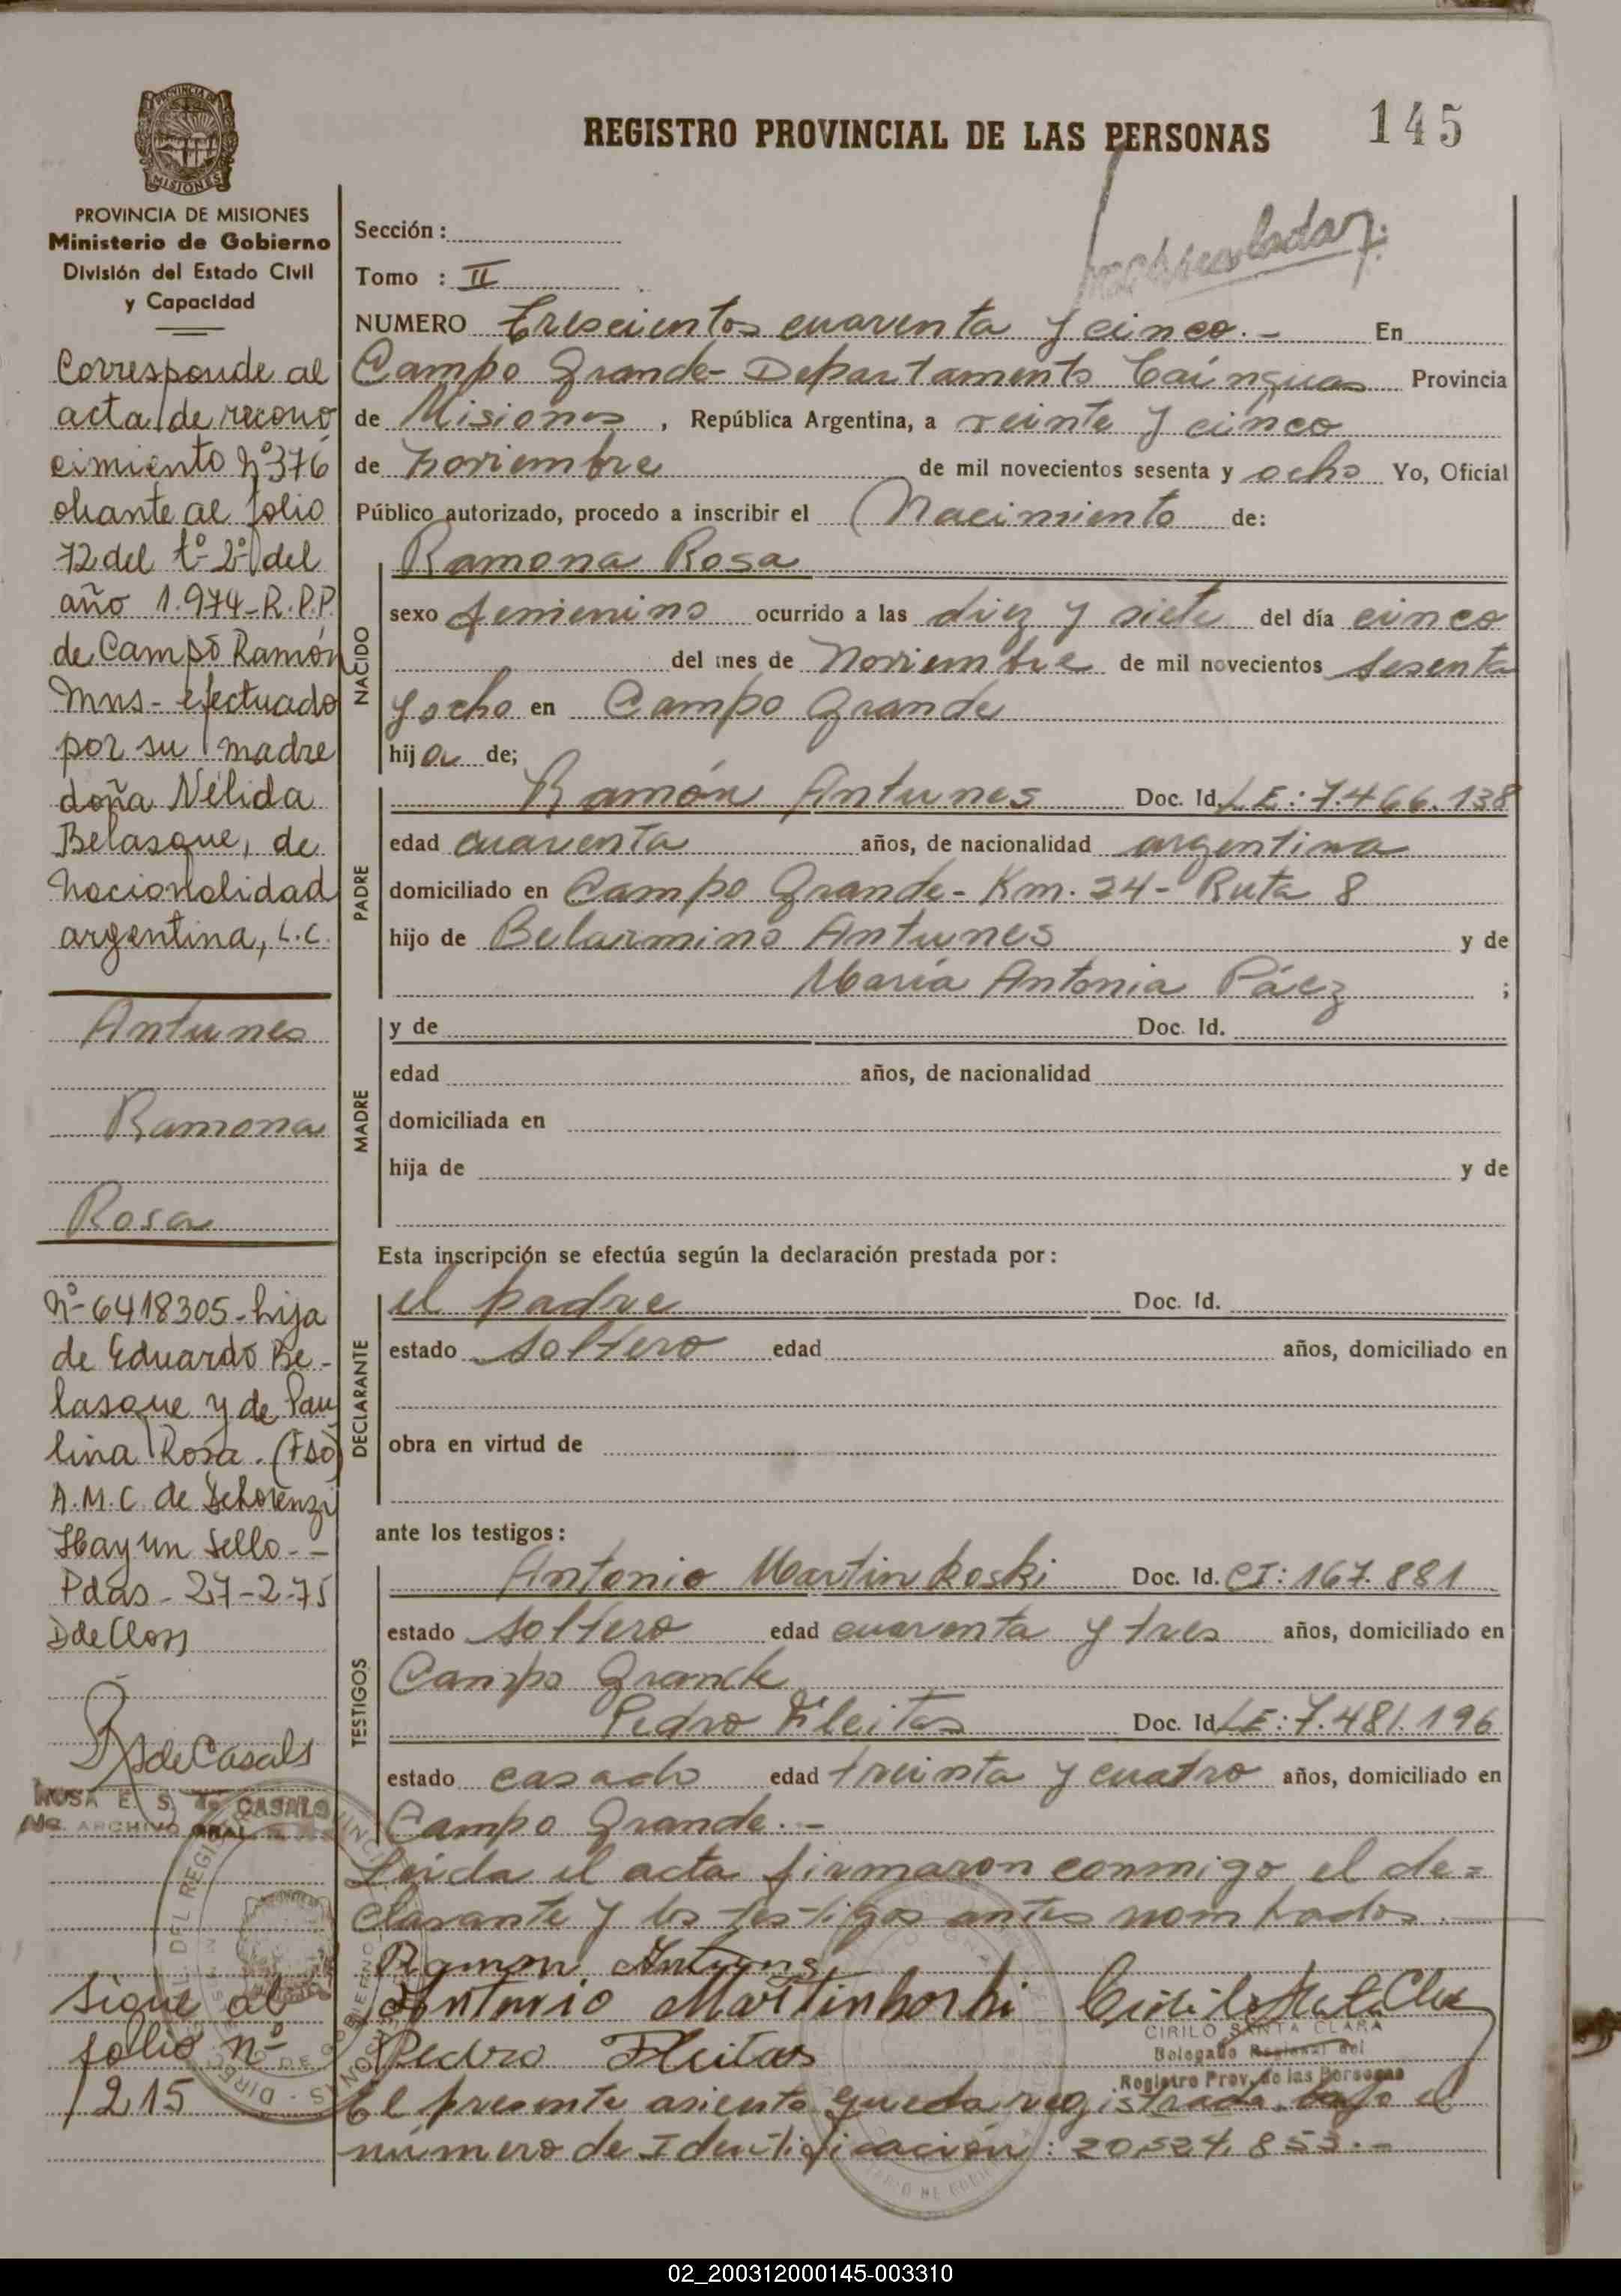 REGISTRO PROVINCIAL DE LAS PERSONAS
145
PROVINCIA DE MISIONES
Ministerio de Gobierno
División del Estado Civil
y Capacidad
Corresponde al
acta de recono
cimiento Nº376
obrante al folio
72 del tº 2º del
año 1.974-R.P.P.
de Campo Ramón
Mns- efectuado
por su madre
doña Nélida
Belasque, de
nacionalidad
argentina, L.C.
Antunes
Ramona
Rosa
Nº-6418305-hija
de Eduardo Be-
lasque y de Pau
lina Rosa. (Fdo)
A.M.C. de
Hay un sello.-
Pdas- 27-2-75
D de Closs
de Casals
ROSA E. S. de CASALS
ARCHIVO GRAL
Sigue al
folio nº
215
Sección:
Tomo : II
NUMERO Trescientos cuarenta y cinco.- En
Campo Grande- Departamento Caínguas Provincia
de Misiones, República Argentina, a veinte y cinco
de noviembre de mil novecientos sesenta y ocho Yo, Oficial
Público autorizado, procedo a inscribir el Nacimiento de:
NACIDO
Ramona Rosa
sexo femenino ocurrido a las diez y siete del día cinco
del mes de Noviembre de mil novecientos sesenta
y ocho en Campo Grande
hija de;
PADRE
Ramón Antunes Doc. Id. LE: 7.466.138
edad cuarenta años, de nacionalidad argentina
domiciliado en Campo Grande- Km. 24- Ruta 8
hijo de Belarmino Antunes y de
María Antonia Páez ;
MADRE
y de Doc. Id.
edad años, de nacionalidad
domiciliada en
hija de y de
Esta inscripción se efectúa según la declaración prestada por:
DECLARANTE
el padre Doc. Id.
estado soltero edad años, domiciliado en
obra en virtud de
ante los testigos:
TESTIGOS
Antonio Martinkoski Doc. Id. CI: 167.881
estado soltero edad cuarenta y tres años, domiciliado en
Campo Grande
Pedro Fleitas Doc. Id. LE: 7.481.196
estado casado edad treinta y cuatro años, domiciliado en
Campo Grande.-
Leida el acta firmaron conmigo el de=
clarante y los testigos antes nombrados.
Ramon Antunes
Antonio Martinkoski
CIRILO SANTA CLARA
Delegado Regional del
Registro Prov. de las Personas
Pedro Fleitas
El presente asiento queda registrado bajo el
número de Identificación: 20.524.853.-
02_200312000145-003310